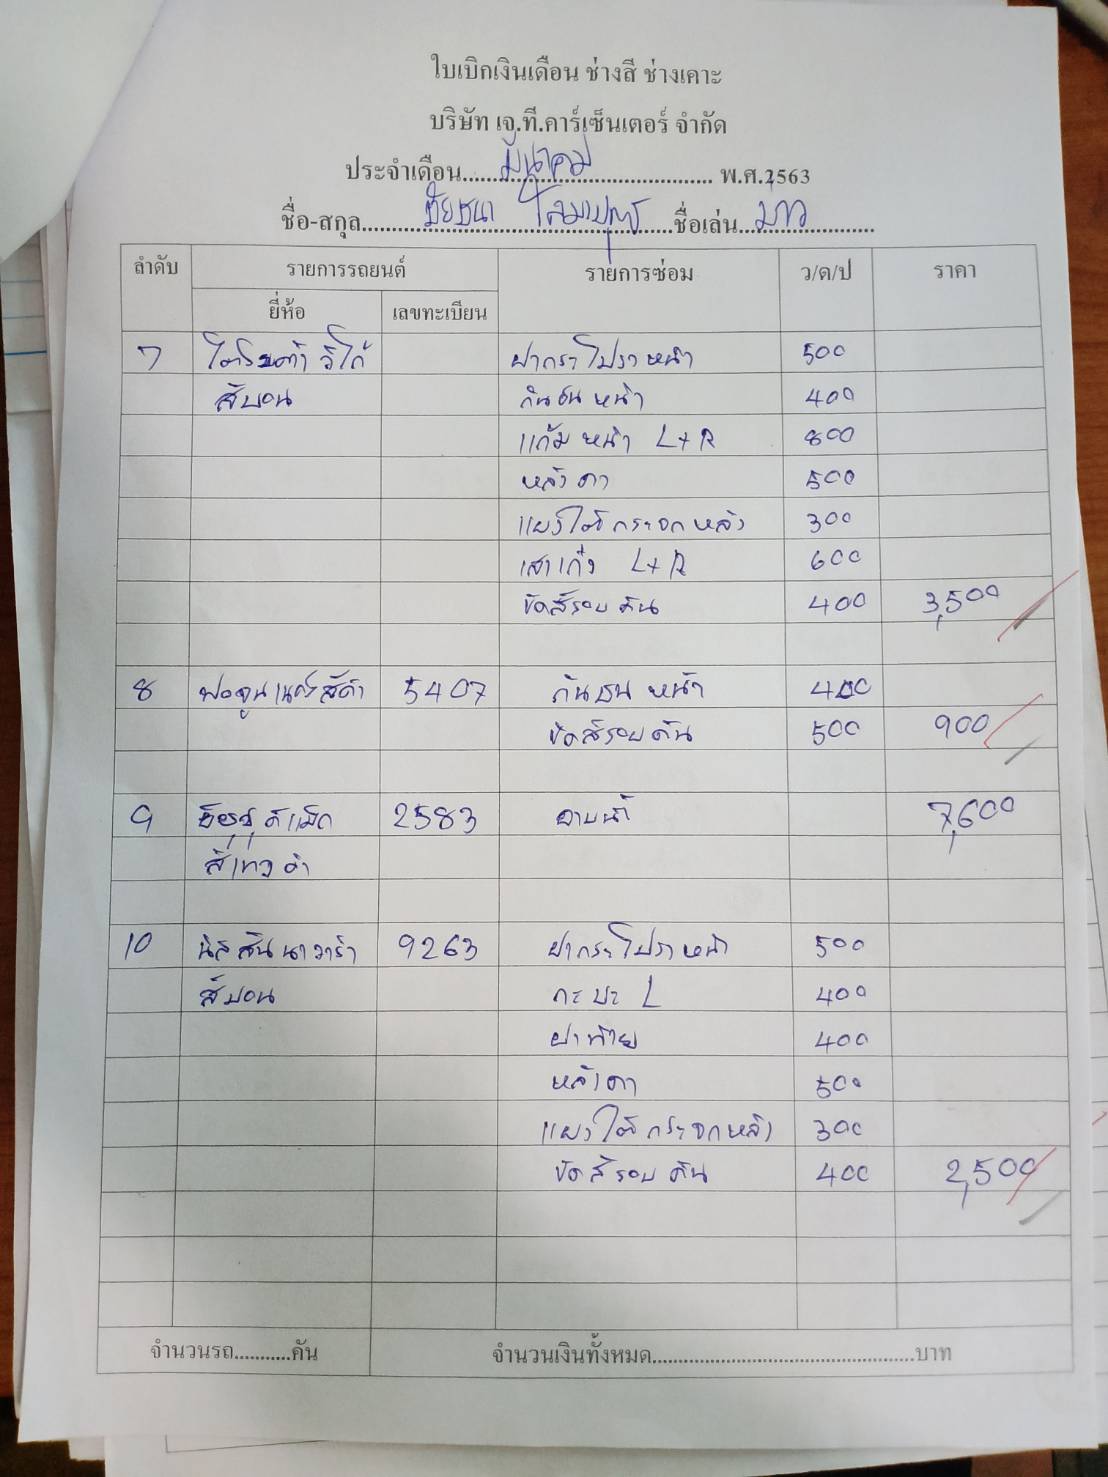 ใบเบิกเงินเดือน ช่างสี ช่างเคาะ
บริษัท เจ.ที.คาร์เซ็นเตอร์ จำกัด
ประจำเดือน มีนาคม พ.ศ.2563
ชื่อ-สกุล ชัยชนา ชื่อเล่น
ลำดับ รายการรถยนต์ รายการซ่อม ว/ด/ป ราคา
ยี่ห้อ เลขทะเบียน
7 โตโยต้า วีโก้ ฝากระโปรง หน้า 500
สีบอน กันชน หน้า 400
แก้ม หน้า L+R 800
หลังคา 500
แผงใต้กระจกหลัง 300
เสาเก๋ง L+R 600
ขัดสีรอบคัน 400 3,500
8 ฟอจูนเนอร์สีดำ 5407 กันชน หน้า 400
ขัดสีรอบคัน 500 900
9 อีซูซุ ดีแม็ก 2583 อาบน้ำ 7,600
สีเทาดำ
10 นิสสัน นาวาร่า 9263 ฝากระโปรง หน้า 500
สีบอน กะบะ L 400
ฝาท้าย 400
หลังคา 500
แผงใต้กระจกหลัง 300
ขัดสีรอบคัน 400 2,500
จำนวนรถ...........คัน จำนวนเงินทั้งหมด.............................................บาท